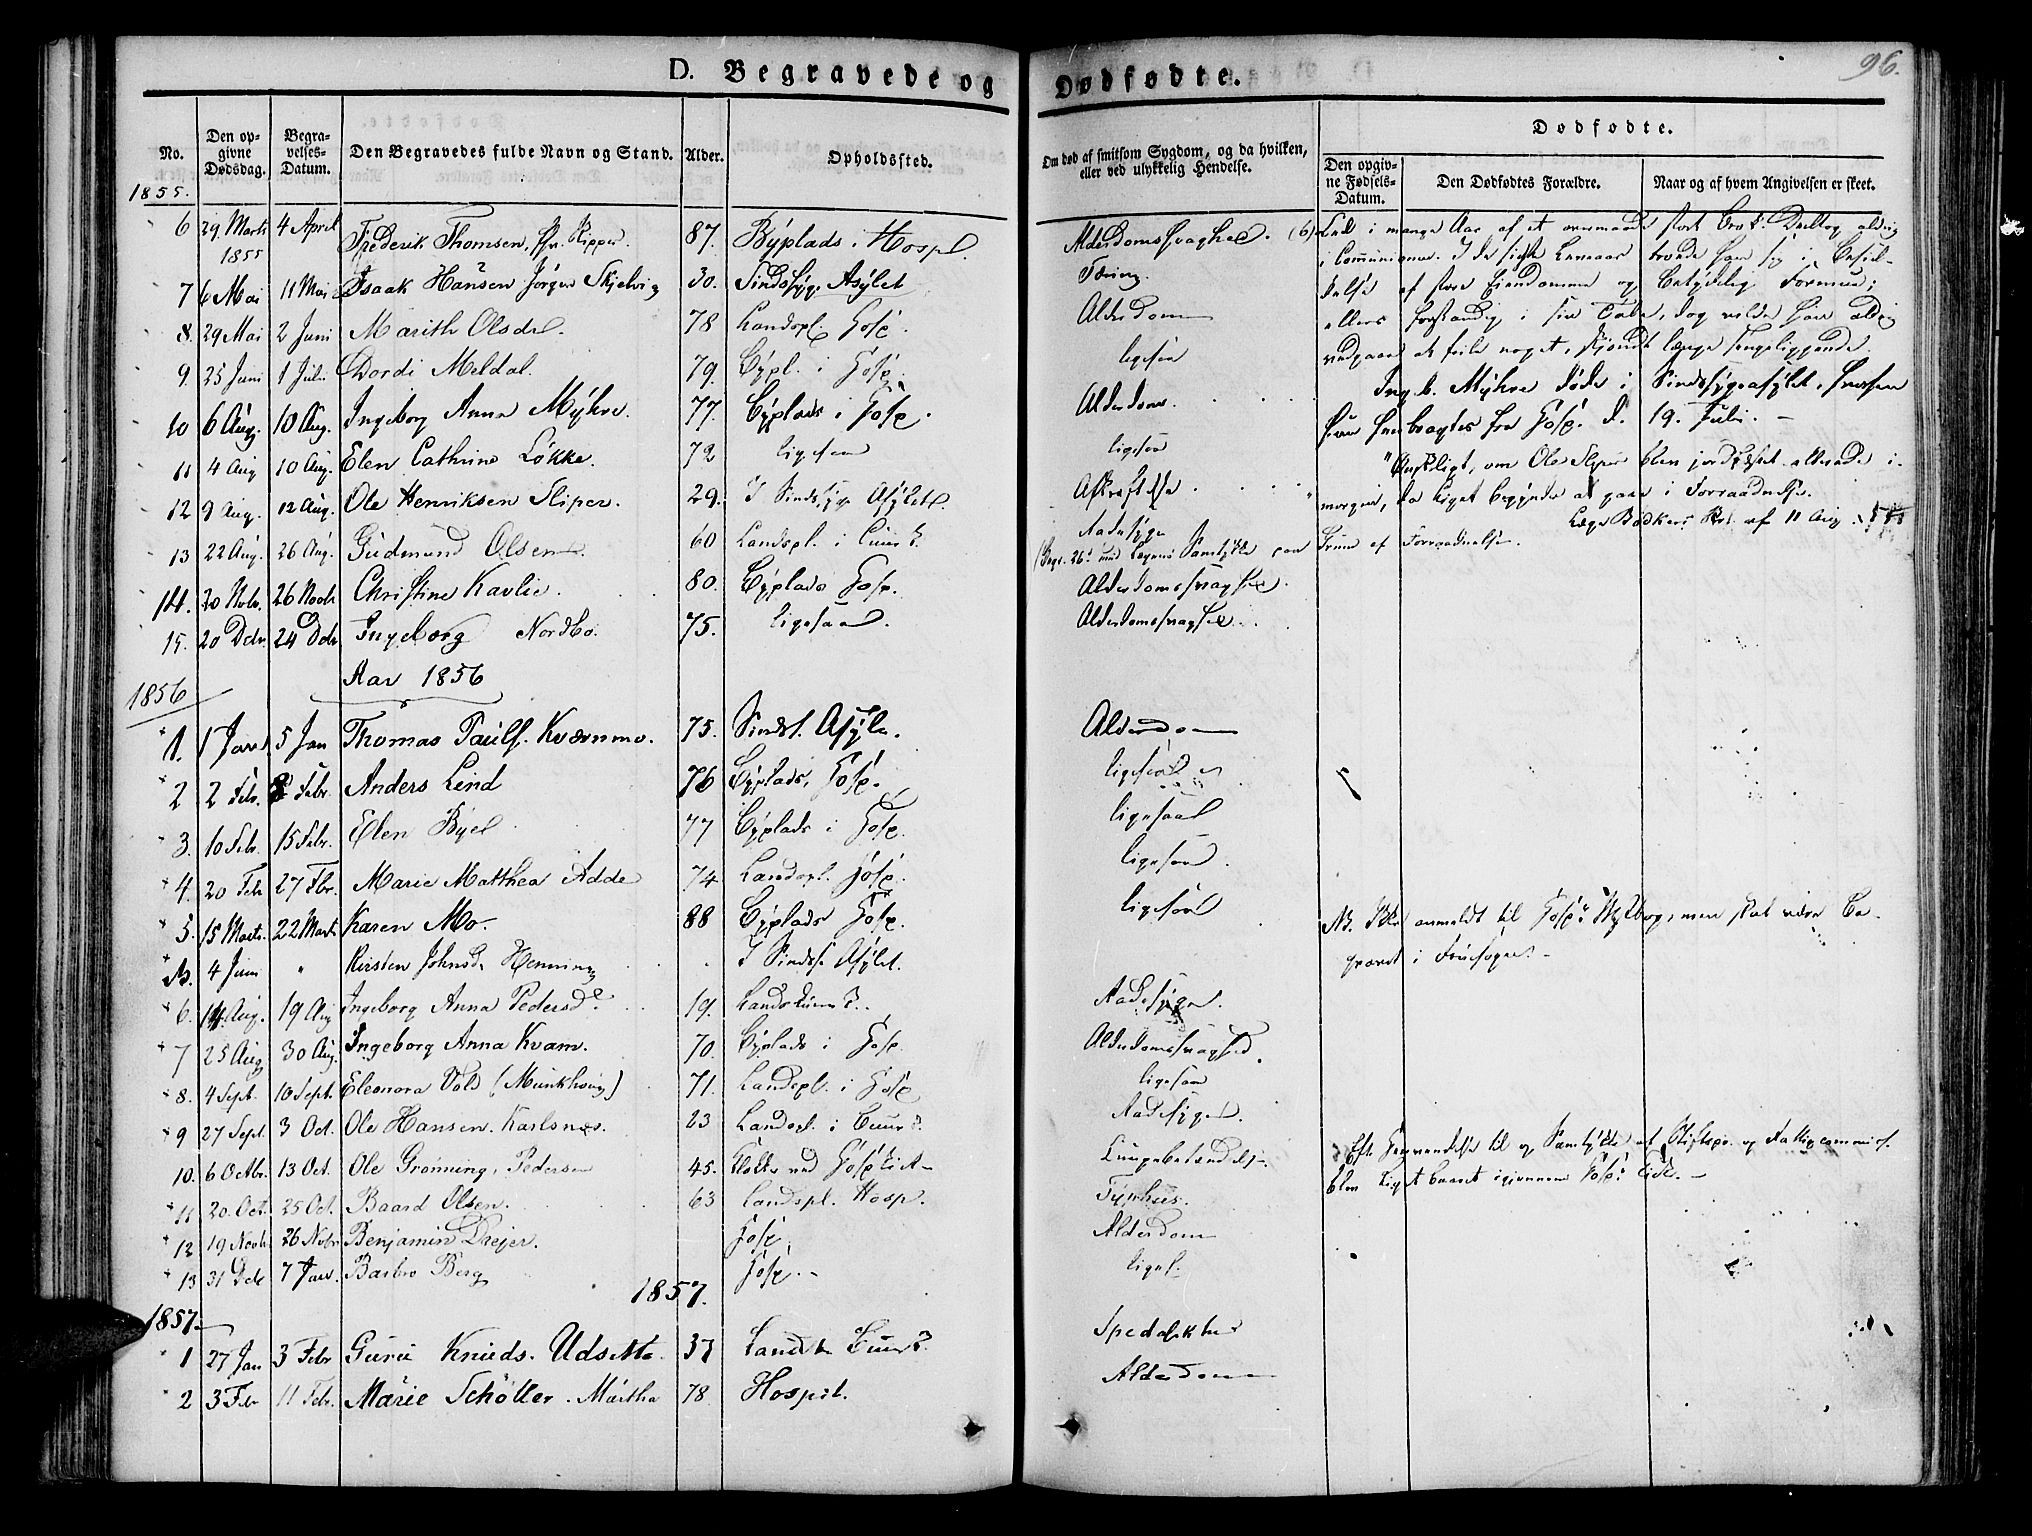 D. Begravede og Dødfødte.
96.
No.
Den opgivne Dødsdag.
Begravelses-Datum.
Den Begravedes fulde Navn og Stand.
Alder.
Opholdsted.
Om død af smitsom Sygdom, og da hvilken, eller ved ulykkelig Hendelse.
Dødfødte.
Den opgivne Fødsels-Datum.
Den Dødfødtes Forældre.
Naar og af hvem Angivelsen er skeet.
1855.
6 29. Marts 1855 4 April Frederik Thomsen, 87. Byplads. Hospl. Alderdomssvaghed. (6)
7 6 Mai 11 Mai Isaak Hansen Jörgen Skjelvig 30. Sindssyge Asylet Tæring.
8. 29 Mai 2 Juni Marith Olsdr. 78 Landspl. Hosp. Alderdom
9. 25 Juni 1 Juli Dordi Meldal. 79. Bypl. i Hosp. ligesaa
10 6 Aug. 10 Aug. Ingeborg Anna Myhre. 77. Byplads i Hosp. Alderdom
11 4 Aug 10 Aug. Elen Cathrine Løkke. 72 ligesaa ligesaa
12 9 Aug. 12 Aug. Ole Henriksen Sliper. 29. I Sindssyge Asylet. Afkræftelse
13 22 Aug. 26 Aug. Gudmund Olsen 60 Landspl. i Cuurh. Radesyge
14. 20 Nobr. 26 Novbr Christine Kavlie. 80. Byplads Hosp. Alderdomssvaghed.
15. 20 Decbr. 24 Decbr Ingeborg Nordbo. 75. ligesaa Alderdomssvaghed.
i mange Aar af et overmaade stort Brok. Deeltog aldrig
i Communionen. I de sidste Leveaar troede han sig i Besid-
delse af store Eiendomme og betydelig Formue;
ellers forstandig i sin Tale, dog vilde han aldrig
vedgaae at feile noget, skjøndt længe sengeliggende.
Ingb. Myhre døde i Sindssygeasylet, hvorhen
hun henbragtes fra Hosp. d. 19. Juli.
"Ønskeligt, om Ole Sliper blev jordfæstet allerede i
morgen, da Liget begynder at gaae i Forraadnelse.
Læge Bødkers af 11 Aug
(Begr. 26. med Lægens Samtykke paa Grund af Forraadnelsen.
Aar 1856
1856
1. 1 Jan 5 Jan Thomas Paulf. Kværnmo. 75. Sindss. Asyle. Alderdom
2 2 Febr. 8 Febr Anders Lind 76 Byplads, Hosp. ligesaa
3. 10 Febr. 15 Febr. Elen Byel 77 Byplads i Hosp. ligesaa
4. 20 Febr 27 Fbr. Marie Matthea Adde 74 Landspl. Hosp. ligesaa
5. 15 Marts 22 Marts Karen Mo. 88 Byplads Hosp. ligesaa
4 Juni " Kirsten Johnsd. Henning I Sindss. Asylet.
NB. anmeldt til Hosp. men skal være be-
gravet i Fruesogn.
6. 14. Aug. 19 Aug Ingeborg Anna Pedersd. 19. Lands Cuurh. Radesyge.
7 25 Aug 30 Aug. Ingeborg Anna Kvam. 70. Byplads i Hosp. Alderdomssvaghed.
8. 4 Sept. 10 Sept. Eleonora Vold (Munkhoug) 71. Landspl. i Hosp ligesaa
9 27 Sept. 3 Oct. Ole Hansen. Karlsnæs. 23 Landspl. i Cuurh. Radesyge.
10. 6 Octbr. 13 Oct. Ole Grønning, Pedersen 45. Klokker ved Hospital Lungebetændelse
Efter Henvendelse til og Samtykke af Stiftspr. og Fattigcommis.
blev Liget baaret igjennem Hosp.
11 20. Oct. 25 Oct. Baard Olsen. 63 Landspl. Hosp. Typhus.
12 19 Novbr 26 Nobr Benjamin Dreyer. Hosp Alderdom
13 31 Dcbr 7 Jan Barbro Berg Hosp. liges.
1857.
1857.
1 27 Jan 3 Febr Guru Knuds. Udsette. 37 Lands Cuurh. Spedalskhed
2 3 Febr 11 Febr. Marie Schöller. Martha 78 Hospit. Alderdom